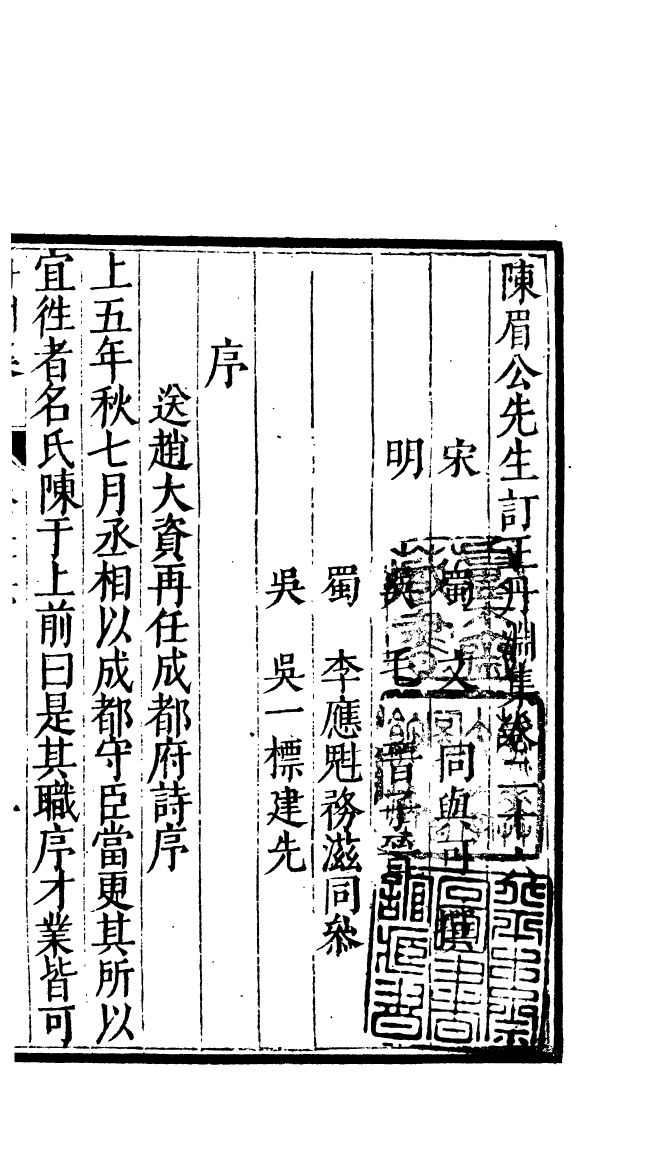 陳眉公先生訂正丹淵集卷二十六
宋　蜀　文　同與可　撰
明　吳　毛　晉子晉
蜀　李應魁務滋同叅
吳　吳一標建先
序
送趙大資再任成都府詩序
上五年秋七月丞相以成都守臣當更其所以
宜徃者名氏陳于上前曰是其職序才業皆可